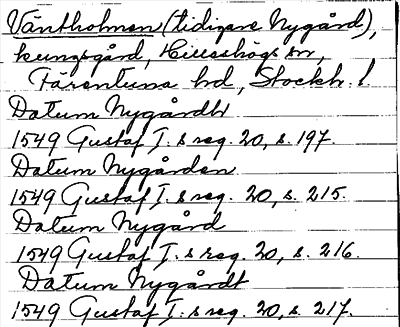 Väntholmen (tidigare Nygård),
kungsgård, Hilleshögs sn,
Färentuna hd, Stockh. l.
Datum Nygårdh
1549 Gustaf I:s reg. 20, s. 197.
Datum Nygården
1549 Gustaf I:s reg. 20, s. 215.
Datum Nygård
1549 Gustaf I:s reg. 20, s. 216.
Datum Nygårdt
1549 Gustaf I:s reg. 20, s. 217.